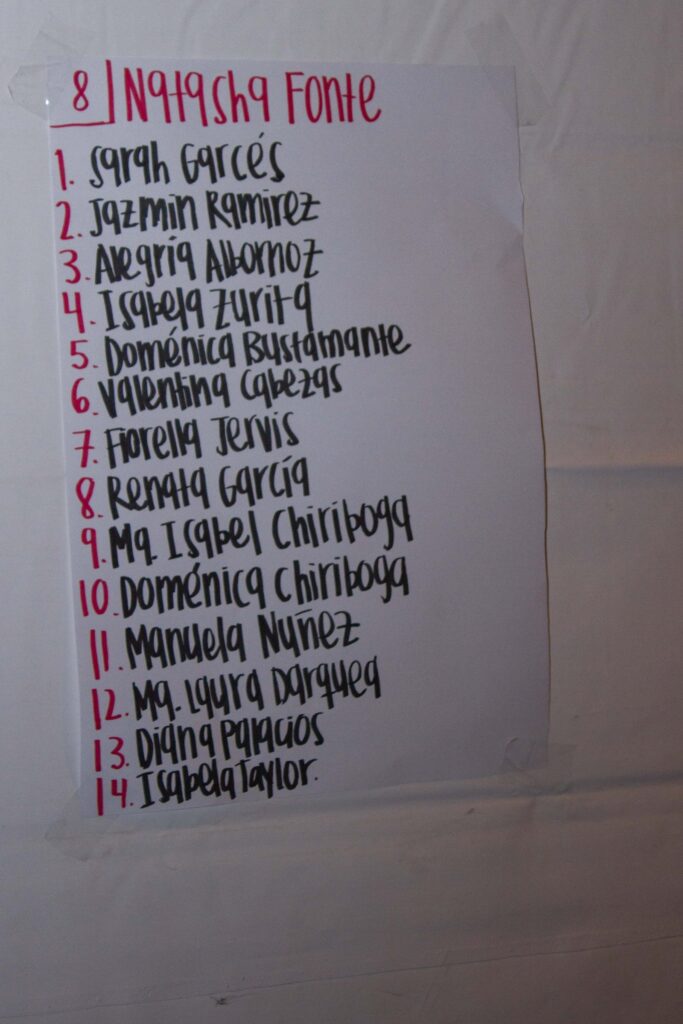 8 Natasha Fonte
1. Sarah Garcés
2. Jazmin Ramirez
3. Alegria Albornoz
4. Isabela Zurita
5. Doménica Bustamante
6. Valentina Cabezas
7. Fiorella Jervis
8. Renata García
9. Ma. Isabel Chiriboga
10. Doménica Chiriboga
11. Manuela Nuñez
12. Ma. Laura Darquea
13. Diana Palacios
14. Isabela Taylor.